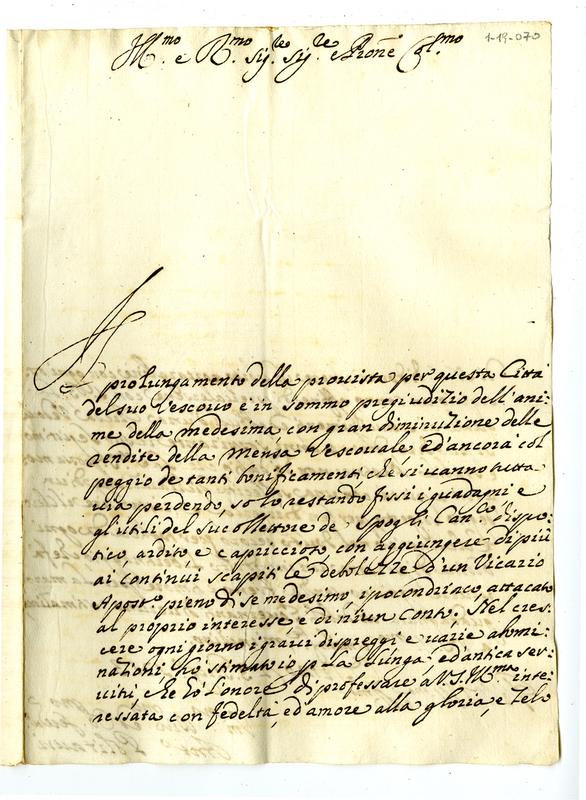 Ill.mo e R.mo Sig.re Sig.re e Prone Col.mo
1-19-070
Il prolungamento della prouista per questa Città
del suo Vescouo è in sommo pregiudizio dell'ani-
me della medesima, con gran diminuzione delle
rendite della Mensa Vescouale, ed'ancora col
peggio de tanti bonificamenti che si uanno tutta
uia perdendo, solo restando fissi i guadagni e
gl'utili del succollettore de Spogli Can.co dispo-
tico ardito e capriccioso, con aggiungere di più
ai continui scapiti le debolezze d'un Vicario
Apost.o pieno di se medesimo ipocondriaco, attacato
al proprio interesse e di niun conto. Nel cres-
cere ogni giorno i graui dispreggi e uarie abomi-
nazioni, hò stimato io p la lunga, ed'antica ser-
uitù che hò l'onore di professare à V.S.Ill.ma inte-
ressata con fedeltà, ed'amore alla gloria, e Zelo